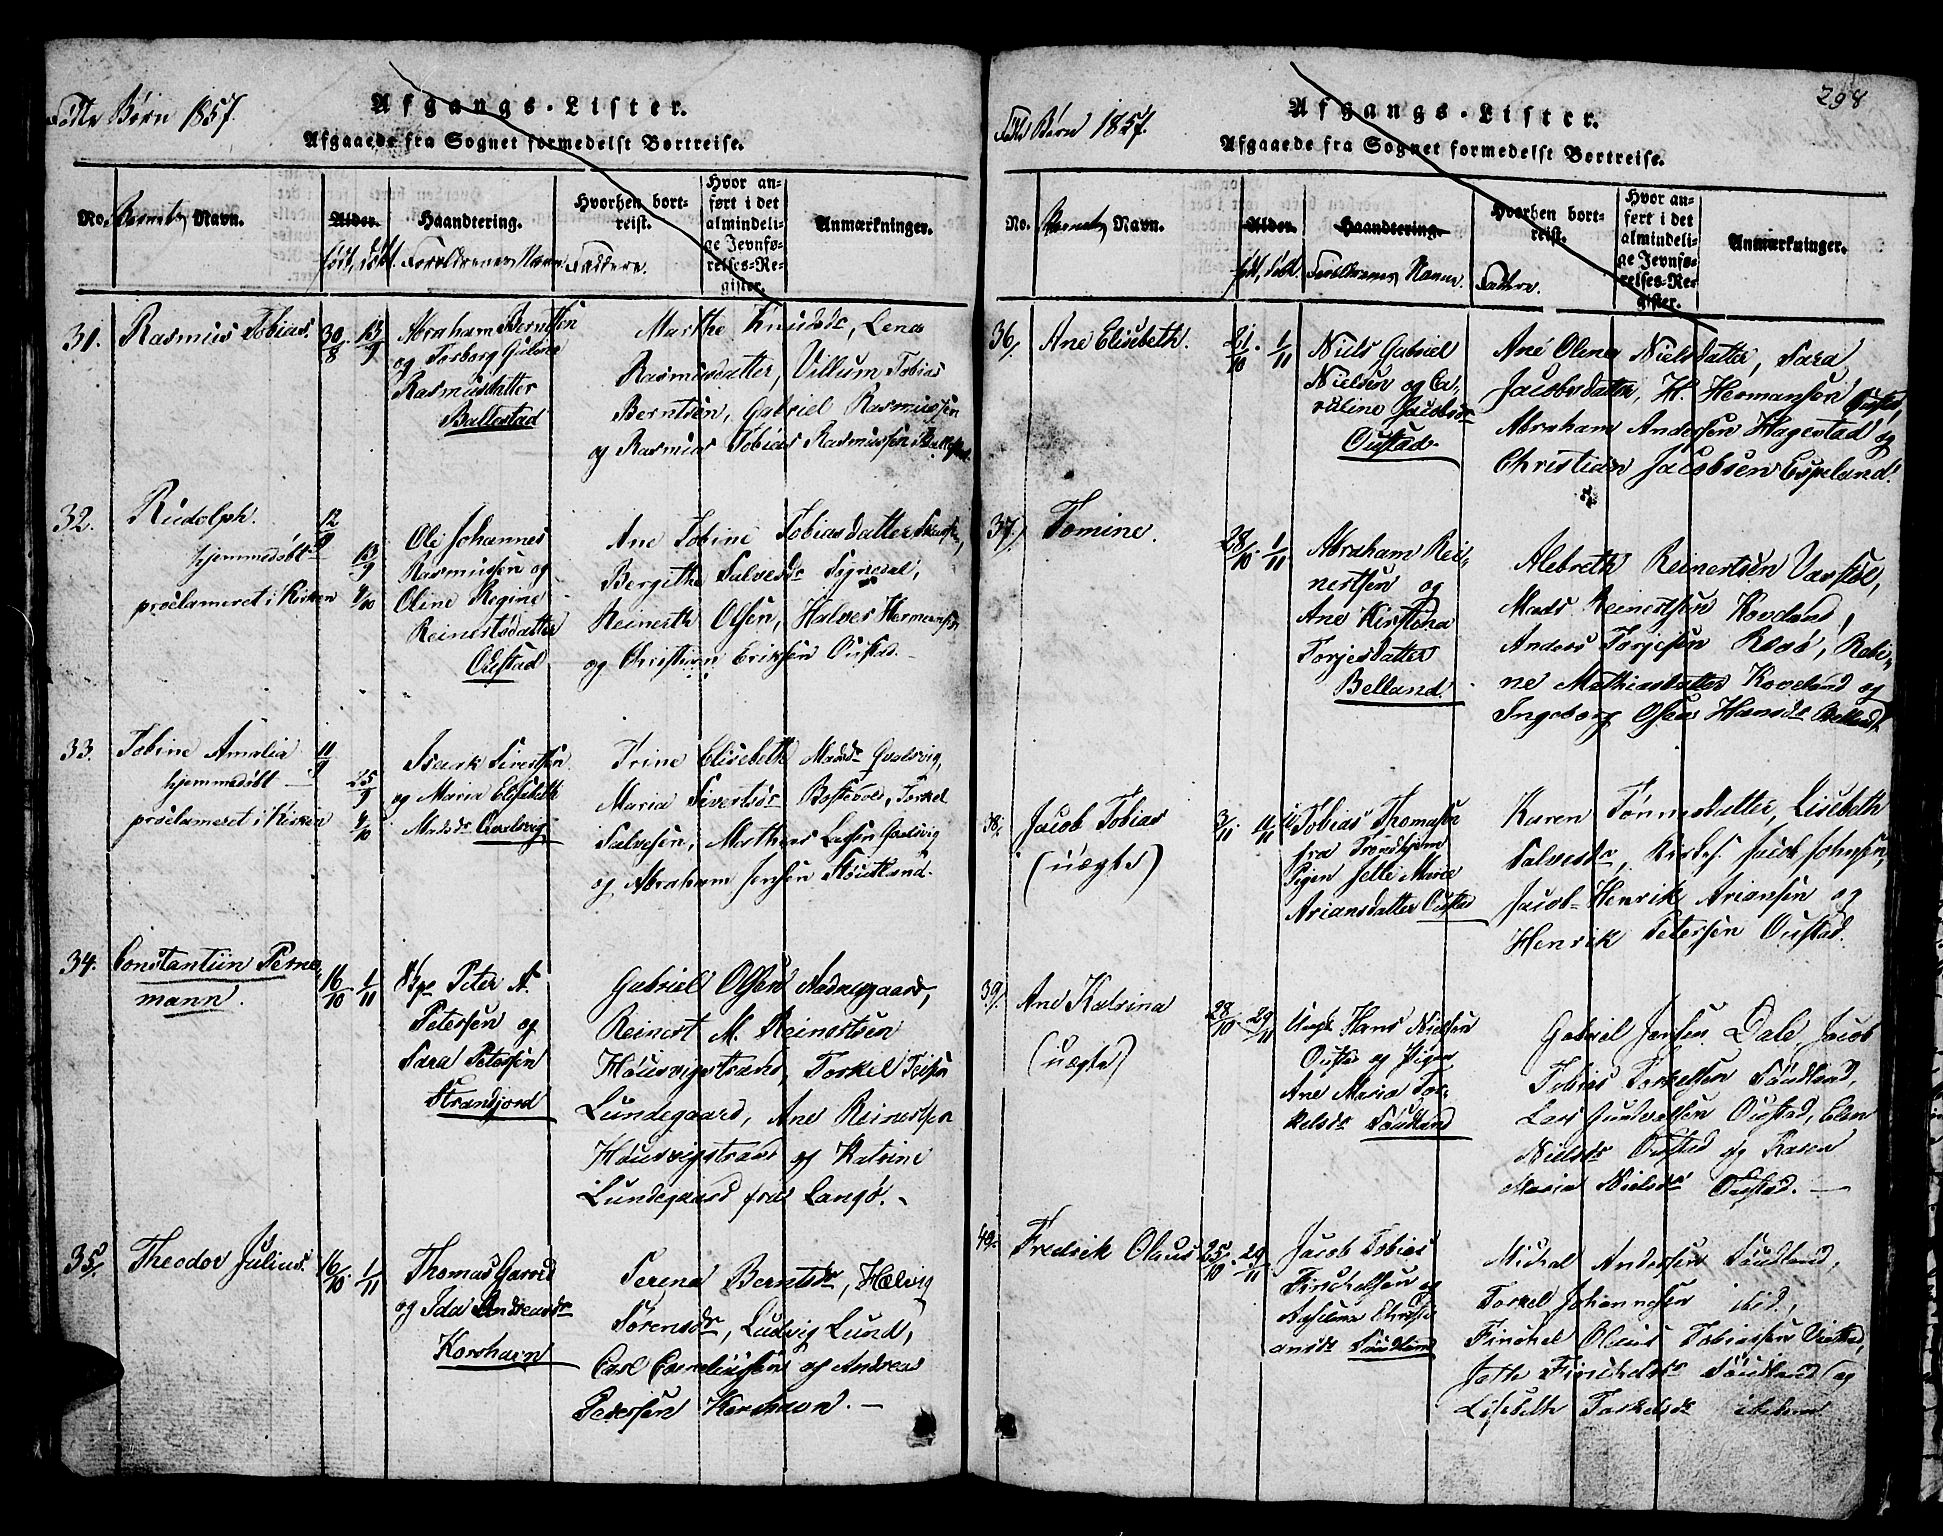 Fødte Børn 1857.
Afgangs-Lister.
Afgaaede fra Sognet formedelst Bortreise.
No.
Barnets Navn.
Alder.
født, døbt.
Haandtering.
Forældrenes Navn
Hvorhen bort-
reist.
Faddere.
Hvor an-
ført i det
almindeli-
ge Jevnfø-
relses-Re-
gister.
Anmærkninger.
31.
Rasmus Tobias.
30/8.
13/9
Abraham Berntsen
og Torborg Gurine
Rasmusdatter
Ballestad
Marthe Knudsdr, Lena
Rasmusdatter, Villum Tobias
Berntsen, Gabriel Rasmussen
og Rasmus Tobias Rasmussen
32.
Rudolph.
hjemmedøbt
proclameret i Kirken
12/9
13/9
4/10
Ole Johannes
Rasmussen og
Oline Regine
Reinertsdatter
Oustad
Ane Tobine Tobiasdatter
Bergithe Salvesdr Sognedal,
Reinerth Olsen, Halves Hermansen
og Christian Eriksen Oustad.
33.
Tobine Amalia
hjemmedøbt
proclameret i Kirken
11/9
25/9
4/10
Isaak Sivertsen
og Maria Elisabeth
Madsdr Qvalsvig
Trine Elisebeth Madsdr Qvalsvig,
Maria Sivertsdr Torkel
Salvesen, Qvalsvig
og Abraham Jensen
34.
Constantin Perne
mann.
16/10.
1/11
Peter A.
Petersen og
Sara Petersen
Strandjord
Gabriel Olsen Aadnegaard,
Reinert M. Reinertsen
Houvigstrand, Torkel
Lundegaard, Ane Reinertsen
Houvigstrand og Katrine
Lundegaard fra Langø.
35.
Theodor Julius.
16/10.
1/11
Thomas
og Ida Andreasdr
Korshavn
Serena Berntsdr, Hælvig
Sørensdr, Ludvig Lund,
Carl Corneliussen og Andreas
Pedersen Korshavn.
298
Fødte Børn 1857.
Afgangs-Lister.
Afgaaede fra Sognet formedelst Bortreise.
No.
Barnets Navn.
Alder.
født, døbt.
Haandtering.
Forældrenes Navne.
Hvorhen bort-
reist.
Faddere.
Hvor an-
ført i det
almindeli-
ge Jevnfø-
relses-Re-
gister.
Anmærkninger.
36.
Ane Elisebeth.
21/10.
1/11
Niels Gabriel
Nielsen og Ca-
roline Jacobsdr
Oustad.
Ane Olene Nielsdatter, Sara
Jacobsdatter, H. Hermansen Oustad,
Abraham Andersen Hagestad og
Christian Jacobsen Espeland.
37.
Tomine.
28/10.
1/11
Abraham Rei-
nertsen og
Ane Kirstina
Torjesdatter
Belland.
Alebreth Reinertsen
Mads Reinertsen Koveland,
Anders Torjesen Rasø, Rebi-
ne Mathiasdatter Koveland og
Ingeborg Hansdr Belland.
38.
Jacob Tobias
(uægte)
3/11.
Tobias Thomasen
fra Trondhjem
Pigen Jelle Marie
Ariansdatter Oustad
Karen Tønnesdatter, Lisebeth
Salvesdr, Kirkes. Jacob Johnsen,
Jacob Henrik Ariansen og
Henrik Petersen Oustad.
39.
Ane Katrina
(uægte)
28/10.
29/11
Ungk. Hans Nielsen
Oustad og Pigen
Ane Maria Tor-
kelsdr Sundland
Gabriel Jensen Dale, Jacob
Tobias Torkelsen Sundland,
Lars Gundvalsen Oustad, Elen
Nielsdr Oustad og Karen
Maria Nielsdr Oustad.
40.
Fredrik Olaus
25/10.
29/11
Jacob Tobias
Finckelsen og
Axeliana Christi-
ansdr Sundland
Michel Andersen Sundland,
Torkel Johannesen ibid.,
Finckel Olaus Tobiassen
Finckelsdr Sundland og
Lisebeth Torkelsdr ibidem